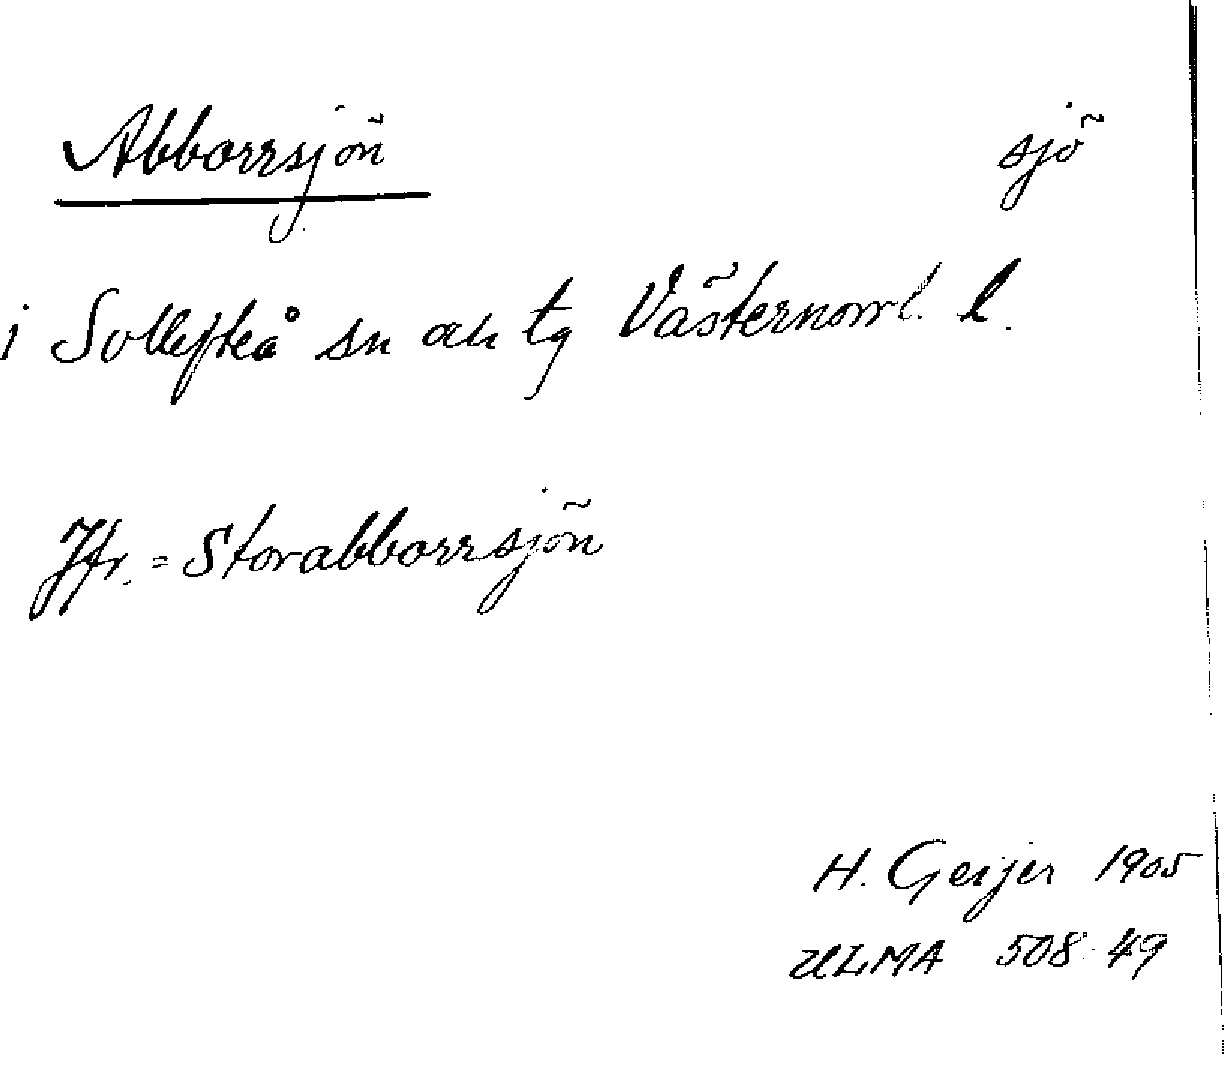 Abborrsjön sjö
i Sollefteå sn och tg Västernorrl. l.
Jfr. = Storabborrsjön
H. Geijer 1905
ULMA 508:49